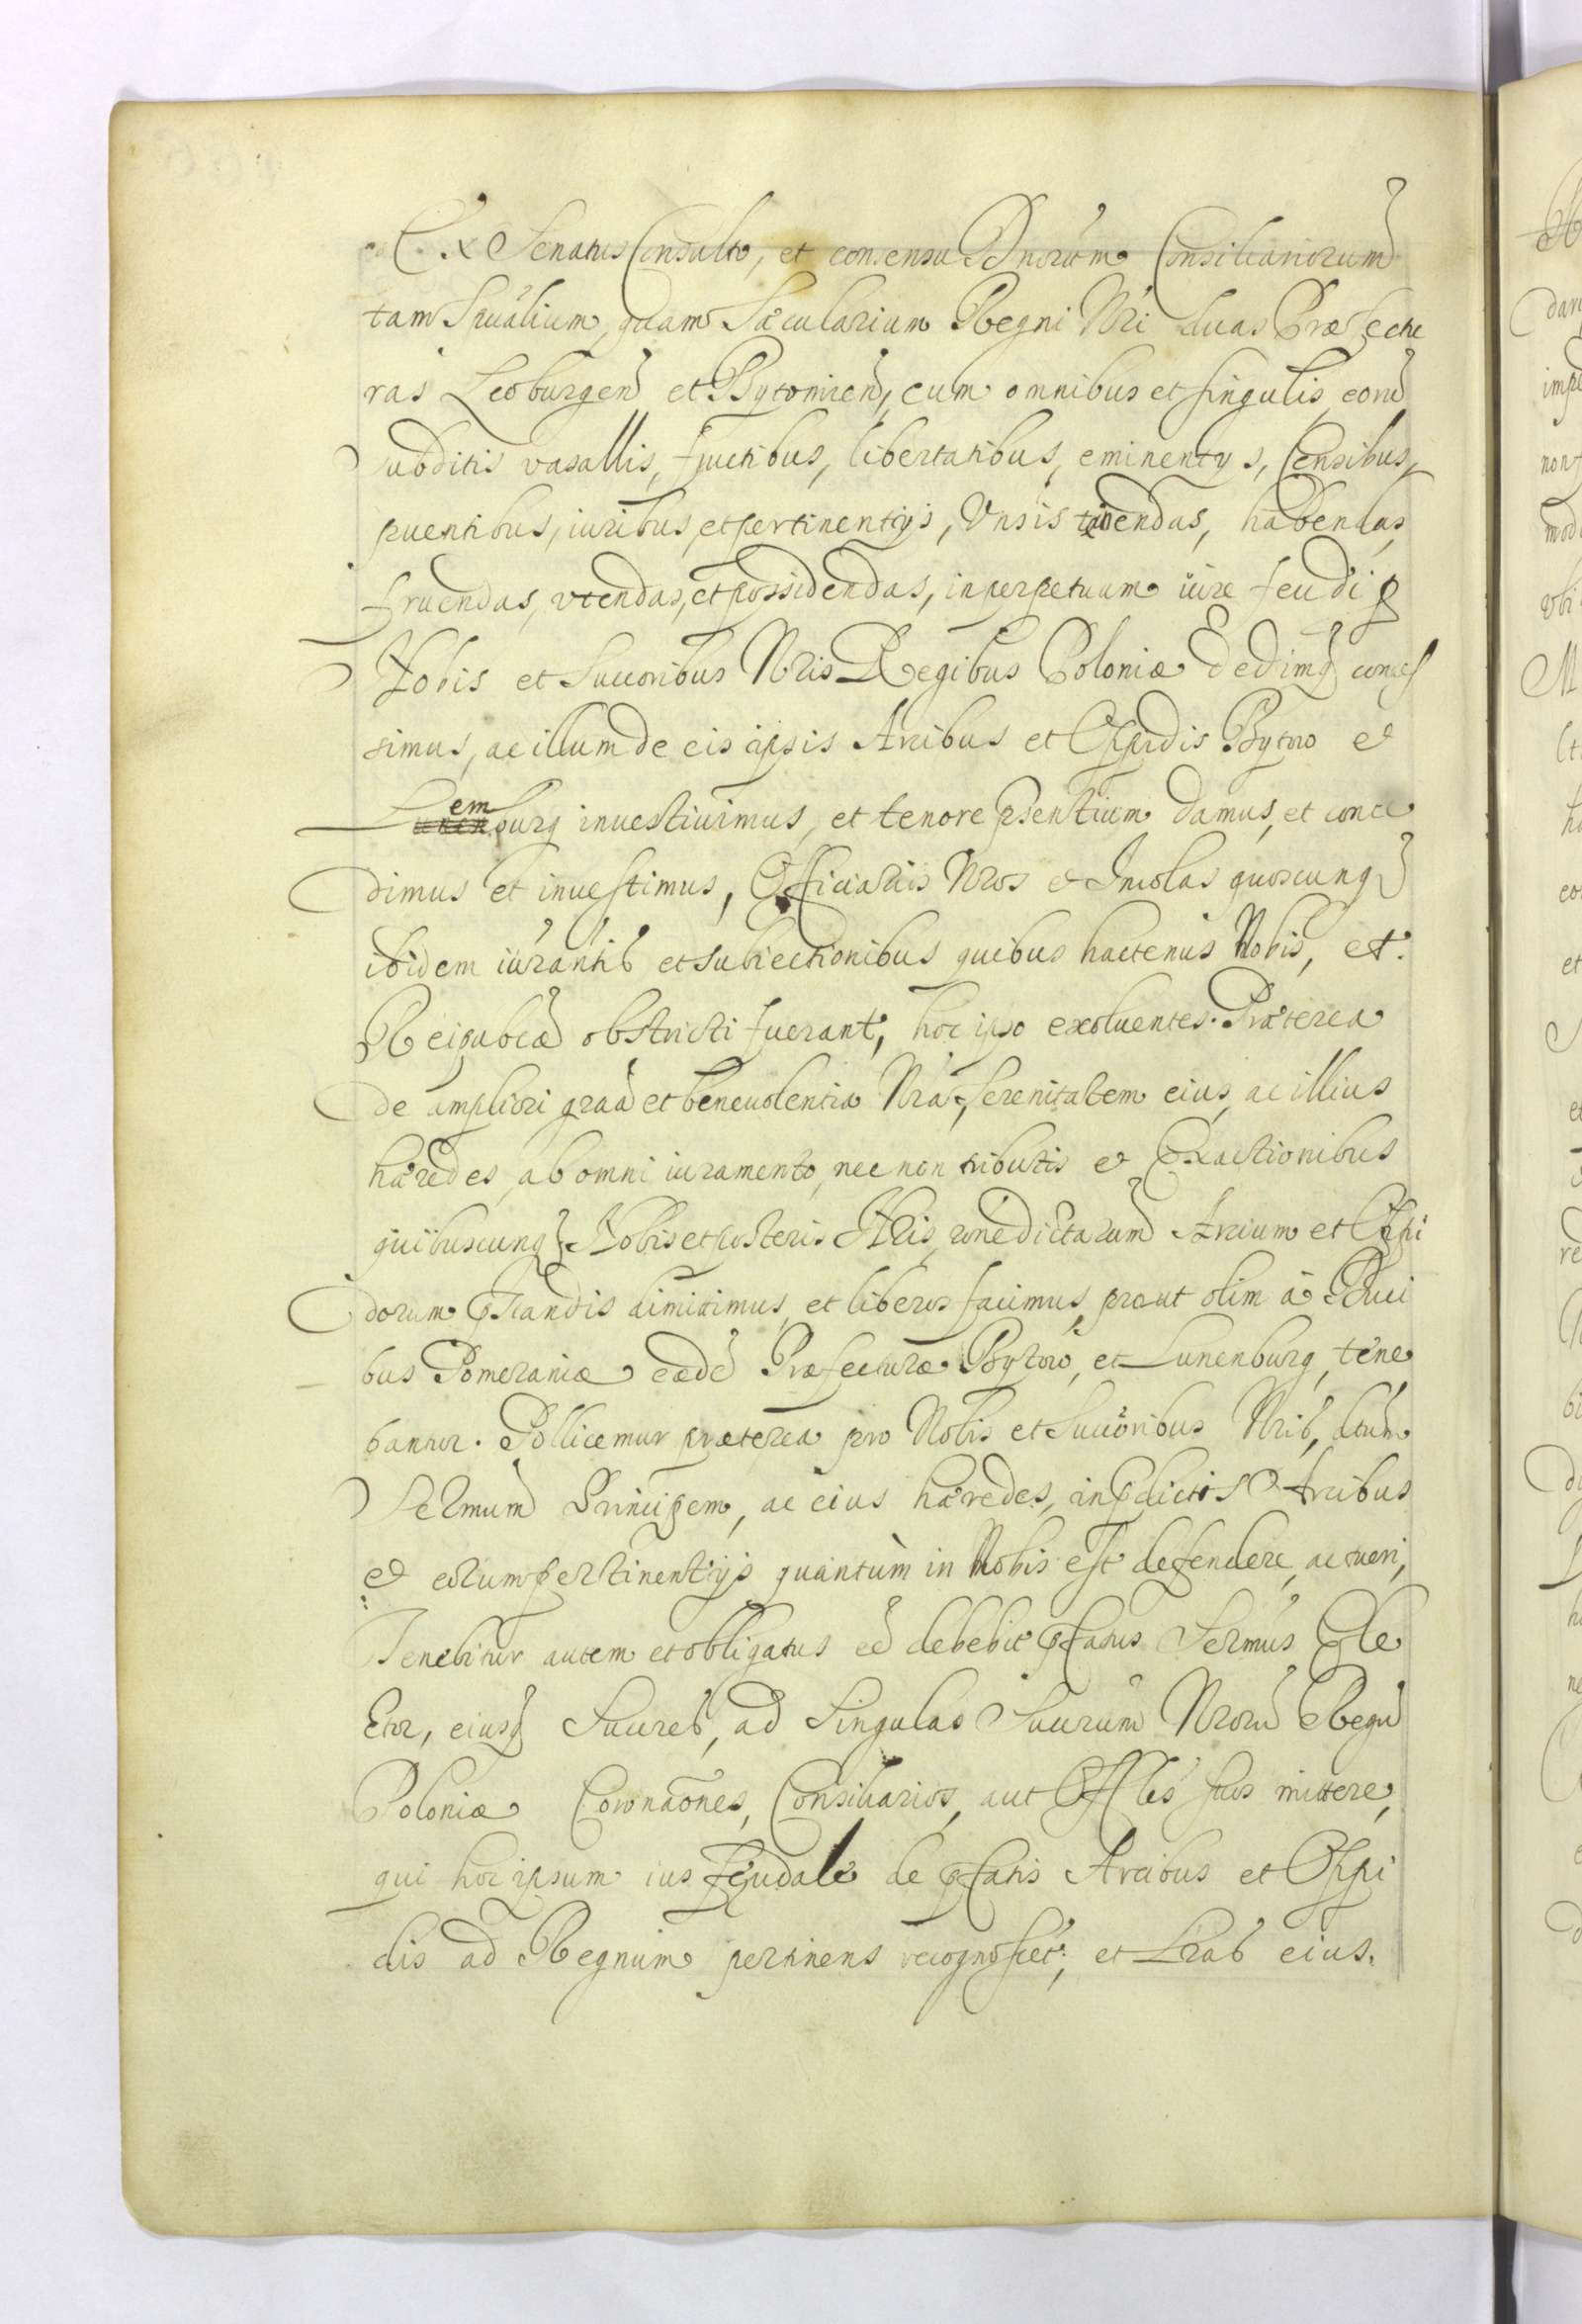 Ex Senatus Consulto, et consensu Dnorum Consiliariorum
tam Spualium, quam Sæcularium Regni Nri duas Præfectu
ras Leoburgen et Bytomien, cum omnibus et singulis eoru
subditis vasallis, fructibus, libertatibus, eminentys, Censibus,
puentibus, iuribus, et pertinentijs, Vnsis tenendas, habendas,
fruendas, vtendas, et possidendas, in perpetuum iure feudi p
Nobis et Succoribus Nris Regibus Poloniæ Dedimq conces
simus, ac illum de eis ipsis Arcibus et Oppidis Bytow et
Lemburg inuestiuimus, et tenore psentium damus, et conce
dimus et inuestimus, Officiarios Nros et Incolas quoscunq
ibidem iurantib et subiectionibus quibus hactenus Nobis, et
Reipublcæ obstricti fuerant, hoc ipso exoluentes. Præterea
de ampliori graa et beneuolentia Nra, Serenitatem eius, ac illius
hæredes, ab omni iuramento, nec non tributis et Exactionibus
quibuscunq Nobis et posteris Nris, rone dictarum Arcium et Oppi
dorum pstandis dimittimus, et liberos facimus, prout olim à Duci
bus Pomeraniæ eæde Præfecturæ Bytow, et Lunenburg, tene
bantur. Pollicemur præterea pro Nobis et Succoribus Nrib, dtum
Sermum Principem, ac eius hæredes, in pdictis Arcibus
et eorum pertinentijs quantùm in Nobis est defendere, ac tueri,
Tenebitur autem et obligatus ee debebit pfatus Sermus Ele
Ctor, eiusq Succres, ad Singulas Succrum Nroru Regu
Poloniæ Coronaones, Consiliarios, aut Offles suos mittere,
qui hoc ipsum ius feudale de pfatis Arcibus et Oppi
dis ad Regnum pertinens recognoscet, et Lrab eius.